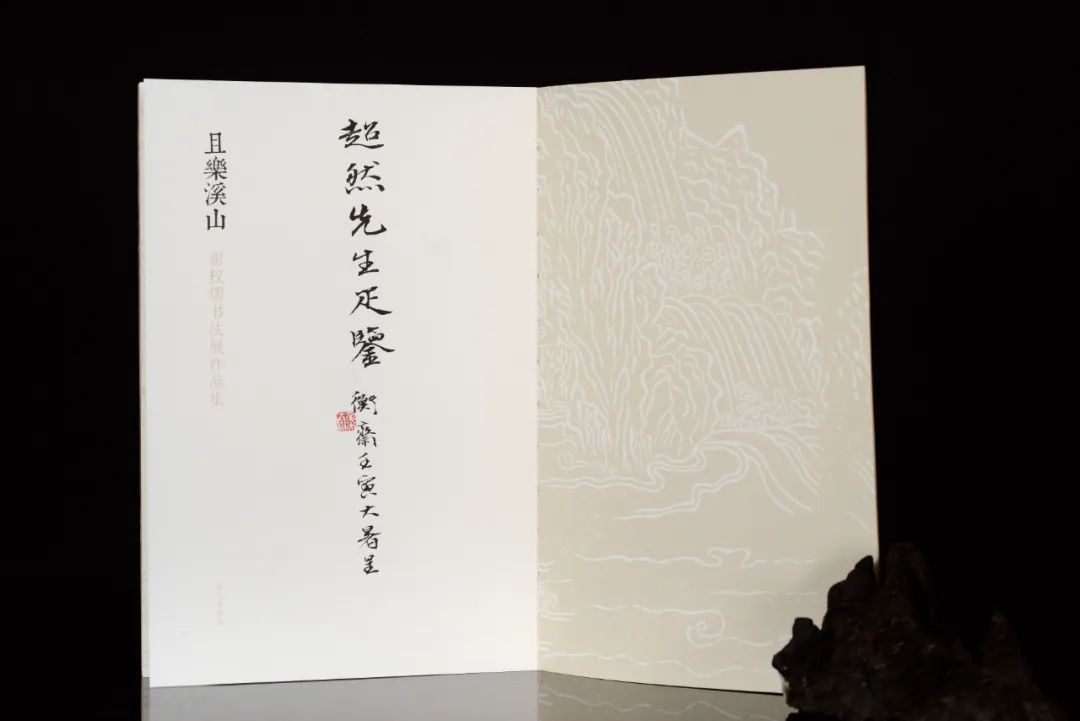 超然先生疋鑒
衡齋壬寅大暑呈
且樂溪山
谢权熠书法展作品集